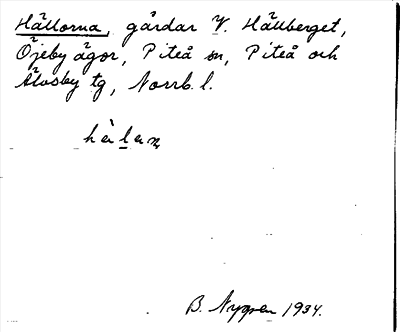 Hällorna, gårdar V. Hällberget,
Öjeby ägor, Piteå sn, Piteå och
Älvsby tg, Norrb. l.
hä̀lan
B. Nygren 1934.